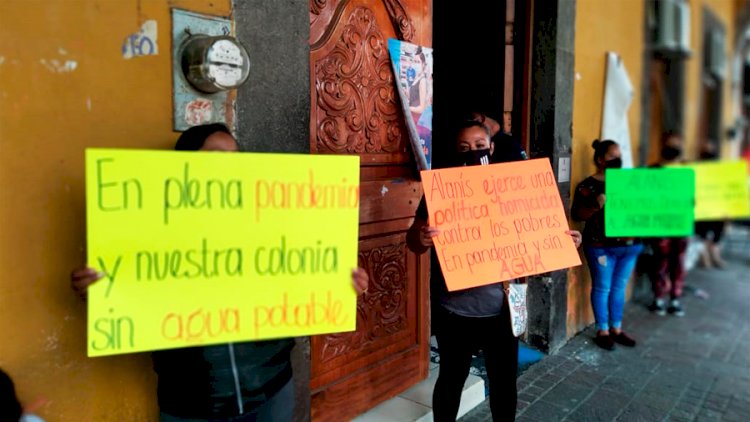 En plena pandemia
y nuestra colonia
sin agua potable
Alanís ejerce una
política homicida
contra los pobres
En pandemia y sin
AGUA
ALANÍS